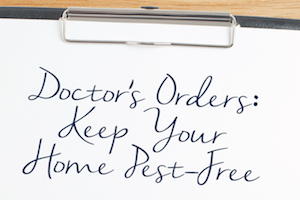 Doctor's Orders:
Keep Your
Home Pest-Free